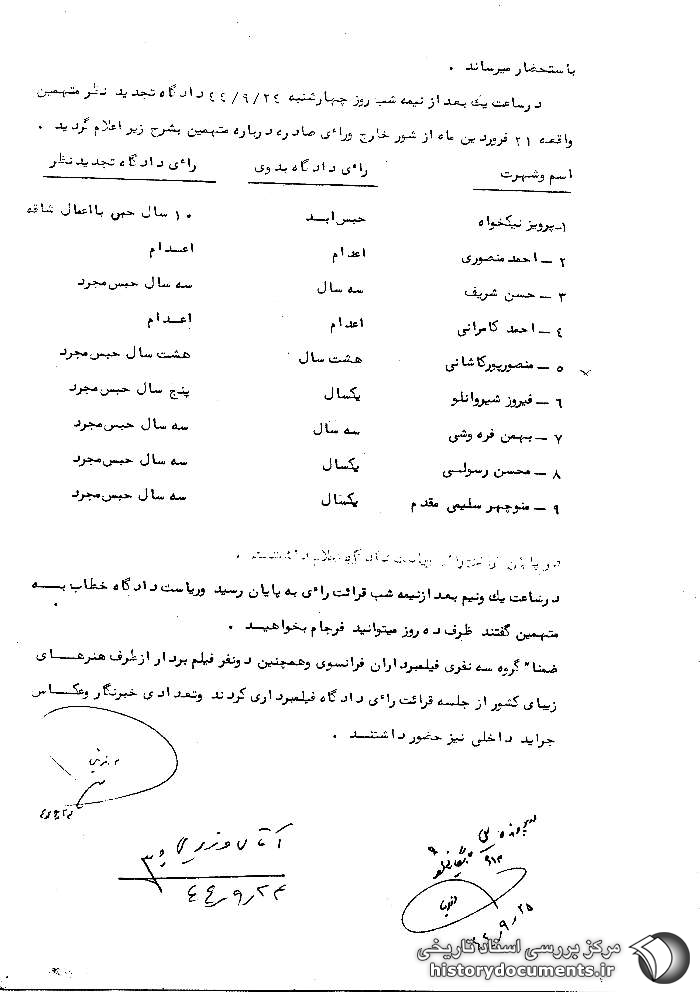 باستحضار میرساند .
در ساعت یک بعد از نیمه شب روز چهارشنبه ۴۴/۹/۲۴ دادگاه تجدید نظر متهمین
واقعه ۲۱ فروردین ماه از شور خارج ورای صادره درباره متهمین بشرح زیر اعلام گردید .
اسم وشهرت رای دادگاه بدوی رای دادگاه تجدید نظر
۱-پرویز نیکخواه حبس ابد ۱۰ سال حبس با اعمال شاقه
۲ - احمد منصوری اعدام اعدام
۳ - حسن شریف سه سال سه سال حبس مجرد
۴ - احمد کامرانی اعدام اعدام
۵ - منصور پورکاشانی هشت سال هشت سال حبس مجرد
۶ - فیروز شیروانلو یکسال پنج سال حبس مجرد
۷ - بهمن فره وشی سه سال سه سال حبس مجرد
۸ - محسن رسولی یکسال سه سال حبس مجرد
۹ - منوچهر سلیمی مقدم یکسال سه سال حبس مجرد
در ساعت یک ونیم بعد از نیمه شب قرائت رای به پایان رسید وریاست دادگاه خطاب به
متهمین گفتند ظرف ده روز میتوانید فرجام بخواهید .
ضمنا" گروه سه نفری فیلمبرداران فرانسوی وهمچنین دونفر فیلم بردار از طرف هنرهای
زیبای کشور از جلسه قرائت رای دادگاه فیلمبرداری کردند وتعدادی خبرنگار وعکاس
جراید داخلی نیز حضور داشتند .
آقای
۴۴/۹/۲۴
۴۴/۹/۲۵
مرکز بررسی اسناد تاریخی
historydocuments.ir